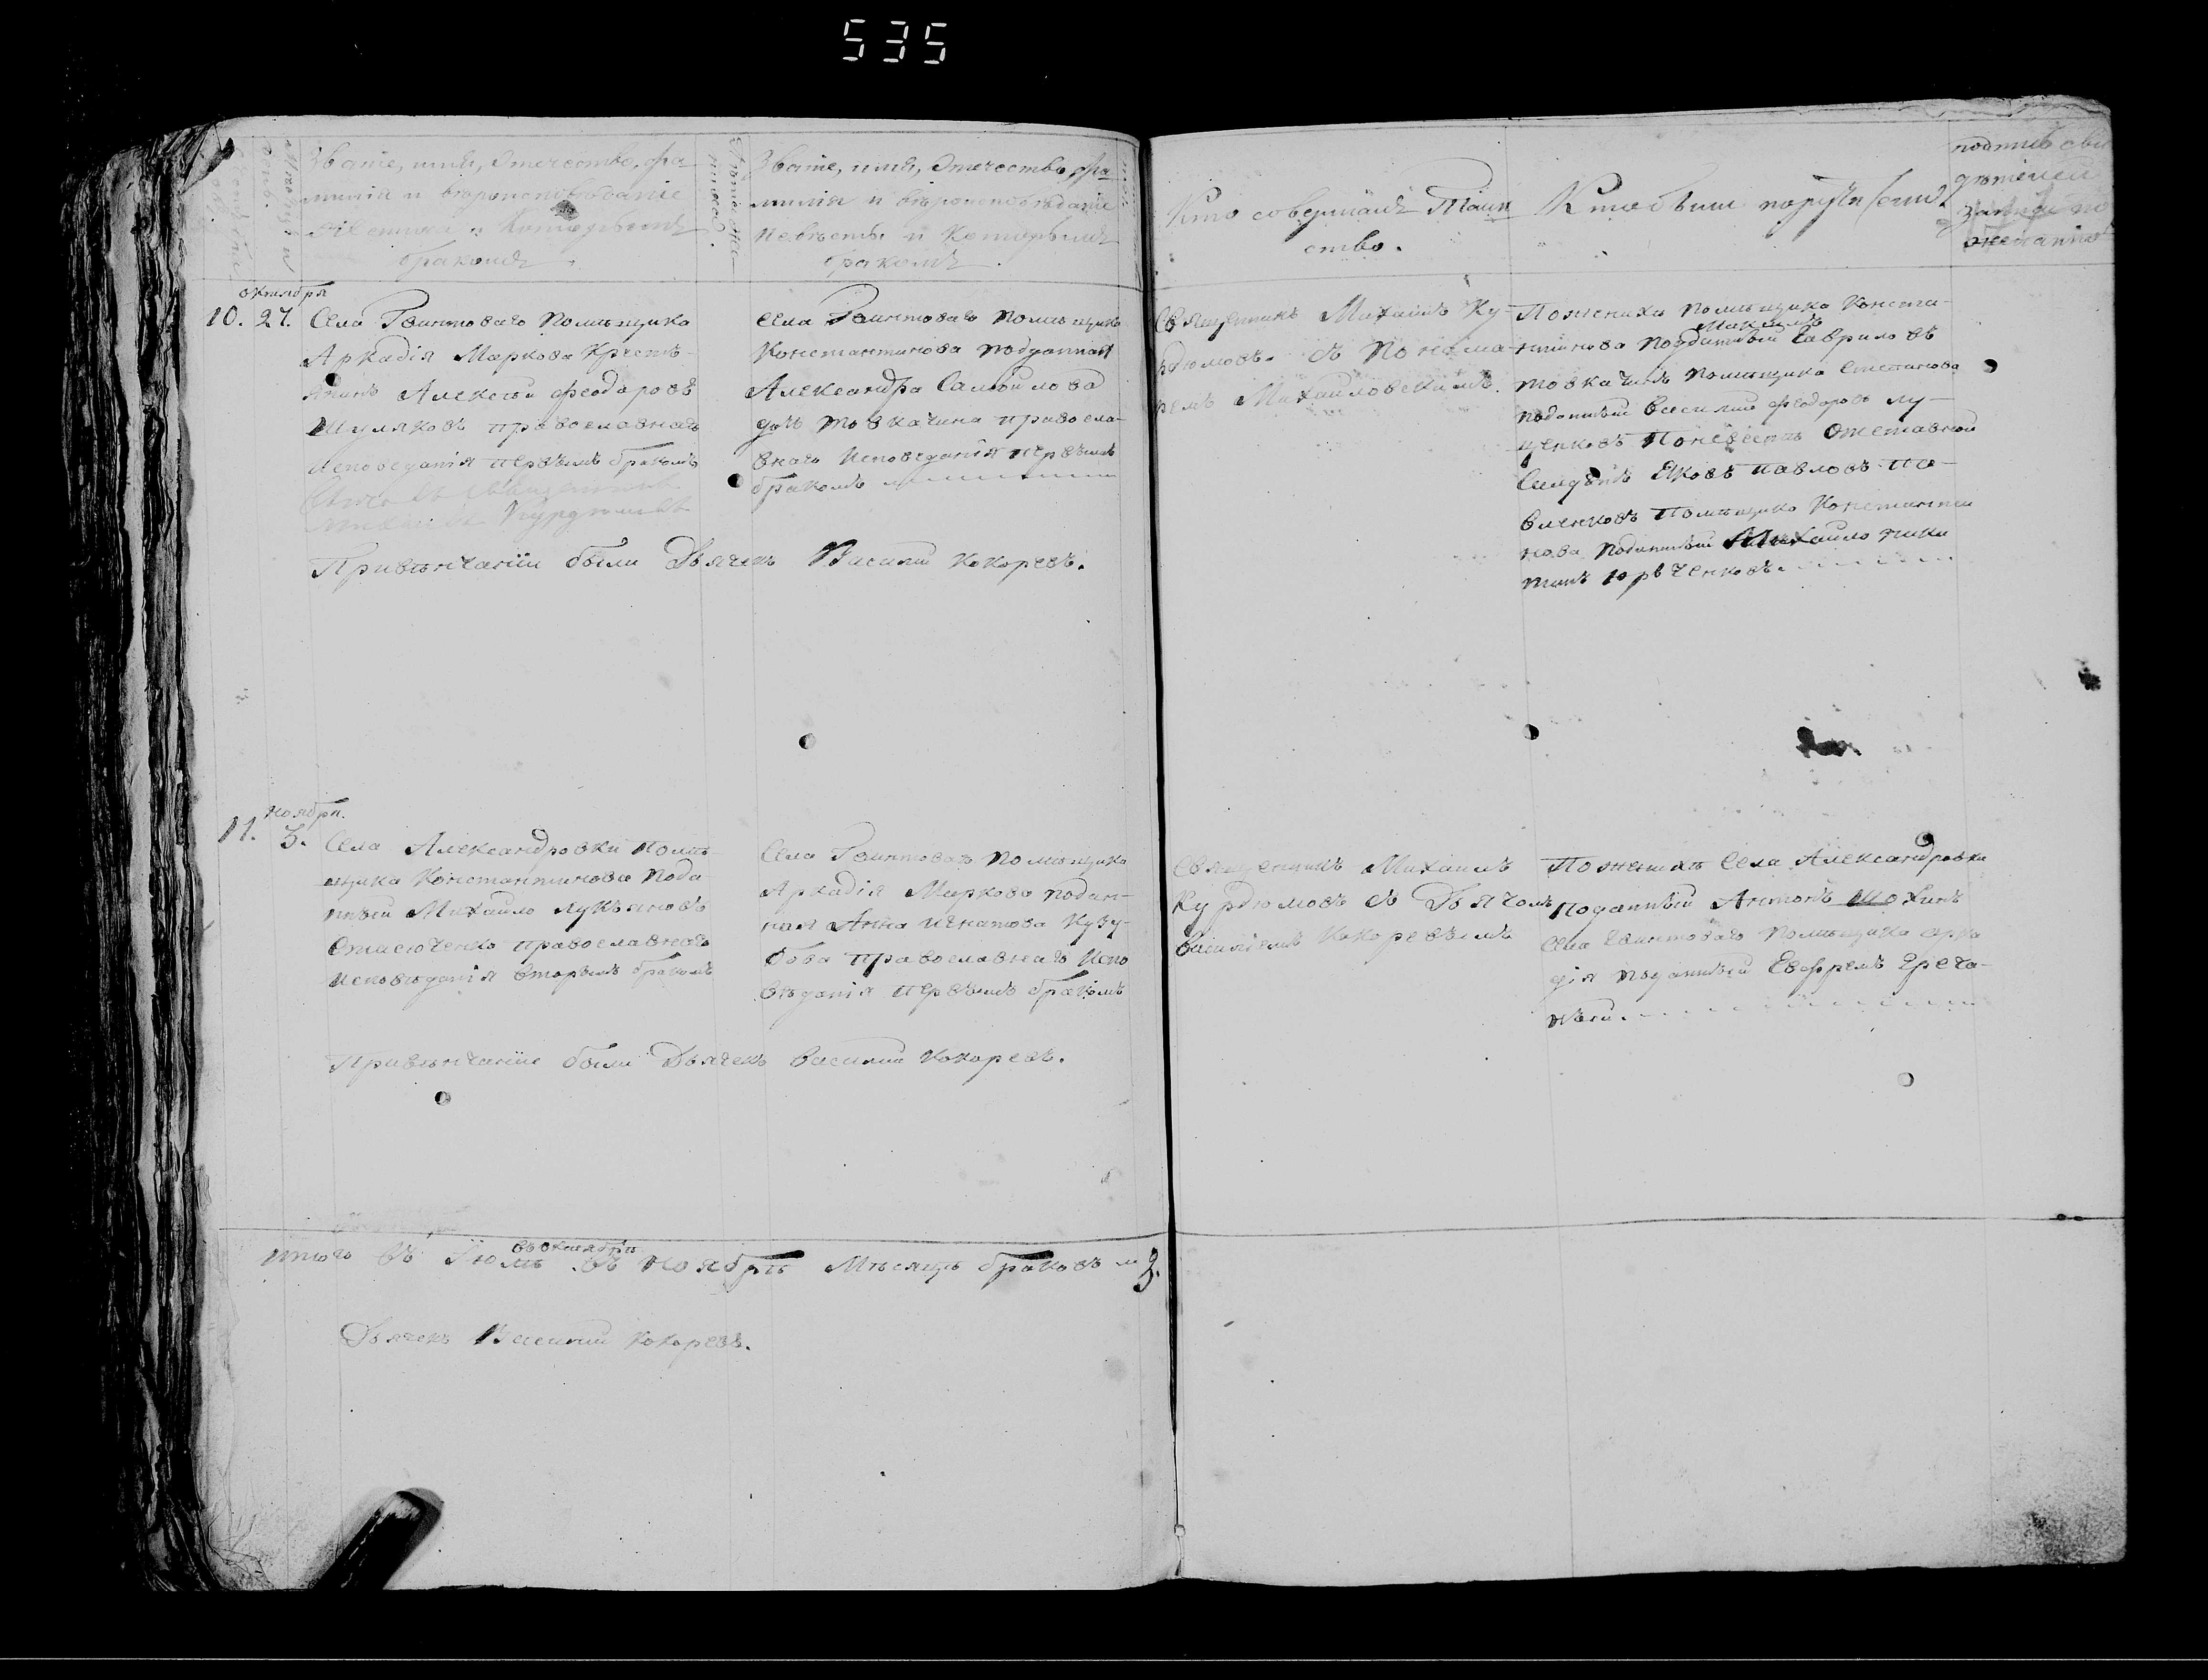 535
Счетъ
Мѣсяцъ и
день.
Званіе, имя, Отечество, фа-
милія и вѣроисповѣданіе
Жениха и Которымъ
бракомъ.
Лѣта Же-
ниховъ.
Званіе, имя, Отечество, фа-
милія и вѣроисповѣданіе
Невѣсты и Которымъ
бракомъ.
Кто совершалъ Таин
ство.
Кто были поручители
подпись сви
дѣтелей
записи по
желанію
октября
10. 27.
Села Гвинтоваго Помѣщика
Аркадія Маркова Крестя-
янинъ Алексѣй Феодоровъ
Шуляковъ православнаго
Исповеданія первымъ бракомъ
Священникъ
Михаилъ Курдюмовъ
Села Гвинтоваго помѣщика
Константинова подданная
Александра Самойлова
дочь товкачина правосла-
внаго Исповеданія первымъ
бракомъ
Священникъ Михаилъ Ку-
рдюмовъ. съ Понома-
ремъ Михайловскимъ.
Поженихи помѣщика Конста-
Максимъ
нтинова подданный Гаврило въ
товкачинъ помѣщика Степанова
подданный Василій Феодоровъ лу-
ценковъ Поневестѣ Отставной
Солдатъ Яковъ павловъ па-
вленковъ Помѣщика Константи
нова подданный Михайло ники
тинъ юрченковъ
Привѣнчаніи были Дьячекъ Василій Кокоревъ.
Ноября.
11. 3.
Села Александровки помѣ-
щика Константинова пода
нный Михайло лукьяновъ
Стасюченко православнаго
Исповѣданія вторымъ бракомъ
Села Гвинтоваго помѣщика
Аркадія Маркова подан-
ная Анна Игнатова Кузу-
бова православнаго Испо
вѣданія первымъ бракомъ
Священникъ Михаилъ
Курдюмовъ съ Дьячомъ
Василіемъ Кокоревымъ
Поженихѣ Села Александровки
Поданный Антонъ Шохинъ
Села Гвинтоваго помѣщика арка
дія подданный Евфремъ Греча-
ный
Привѣнчаніе были Дьячекъ Василій Кокоревъ.
въ октябрѣ
итого въ Іюлѣ въ Ноябрѣ Мѣсяцѣ браковъ 3.
Дьячекъ Василій Кокоревъ.